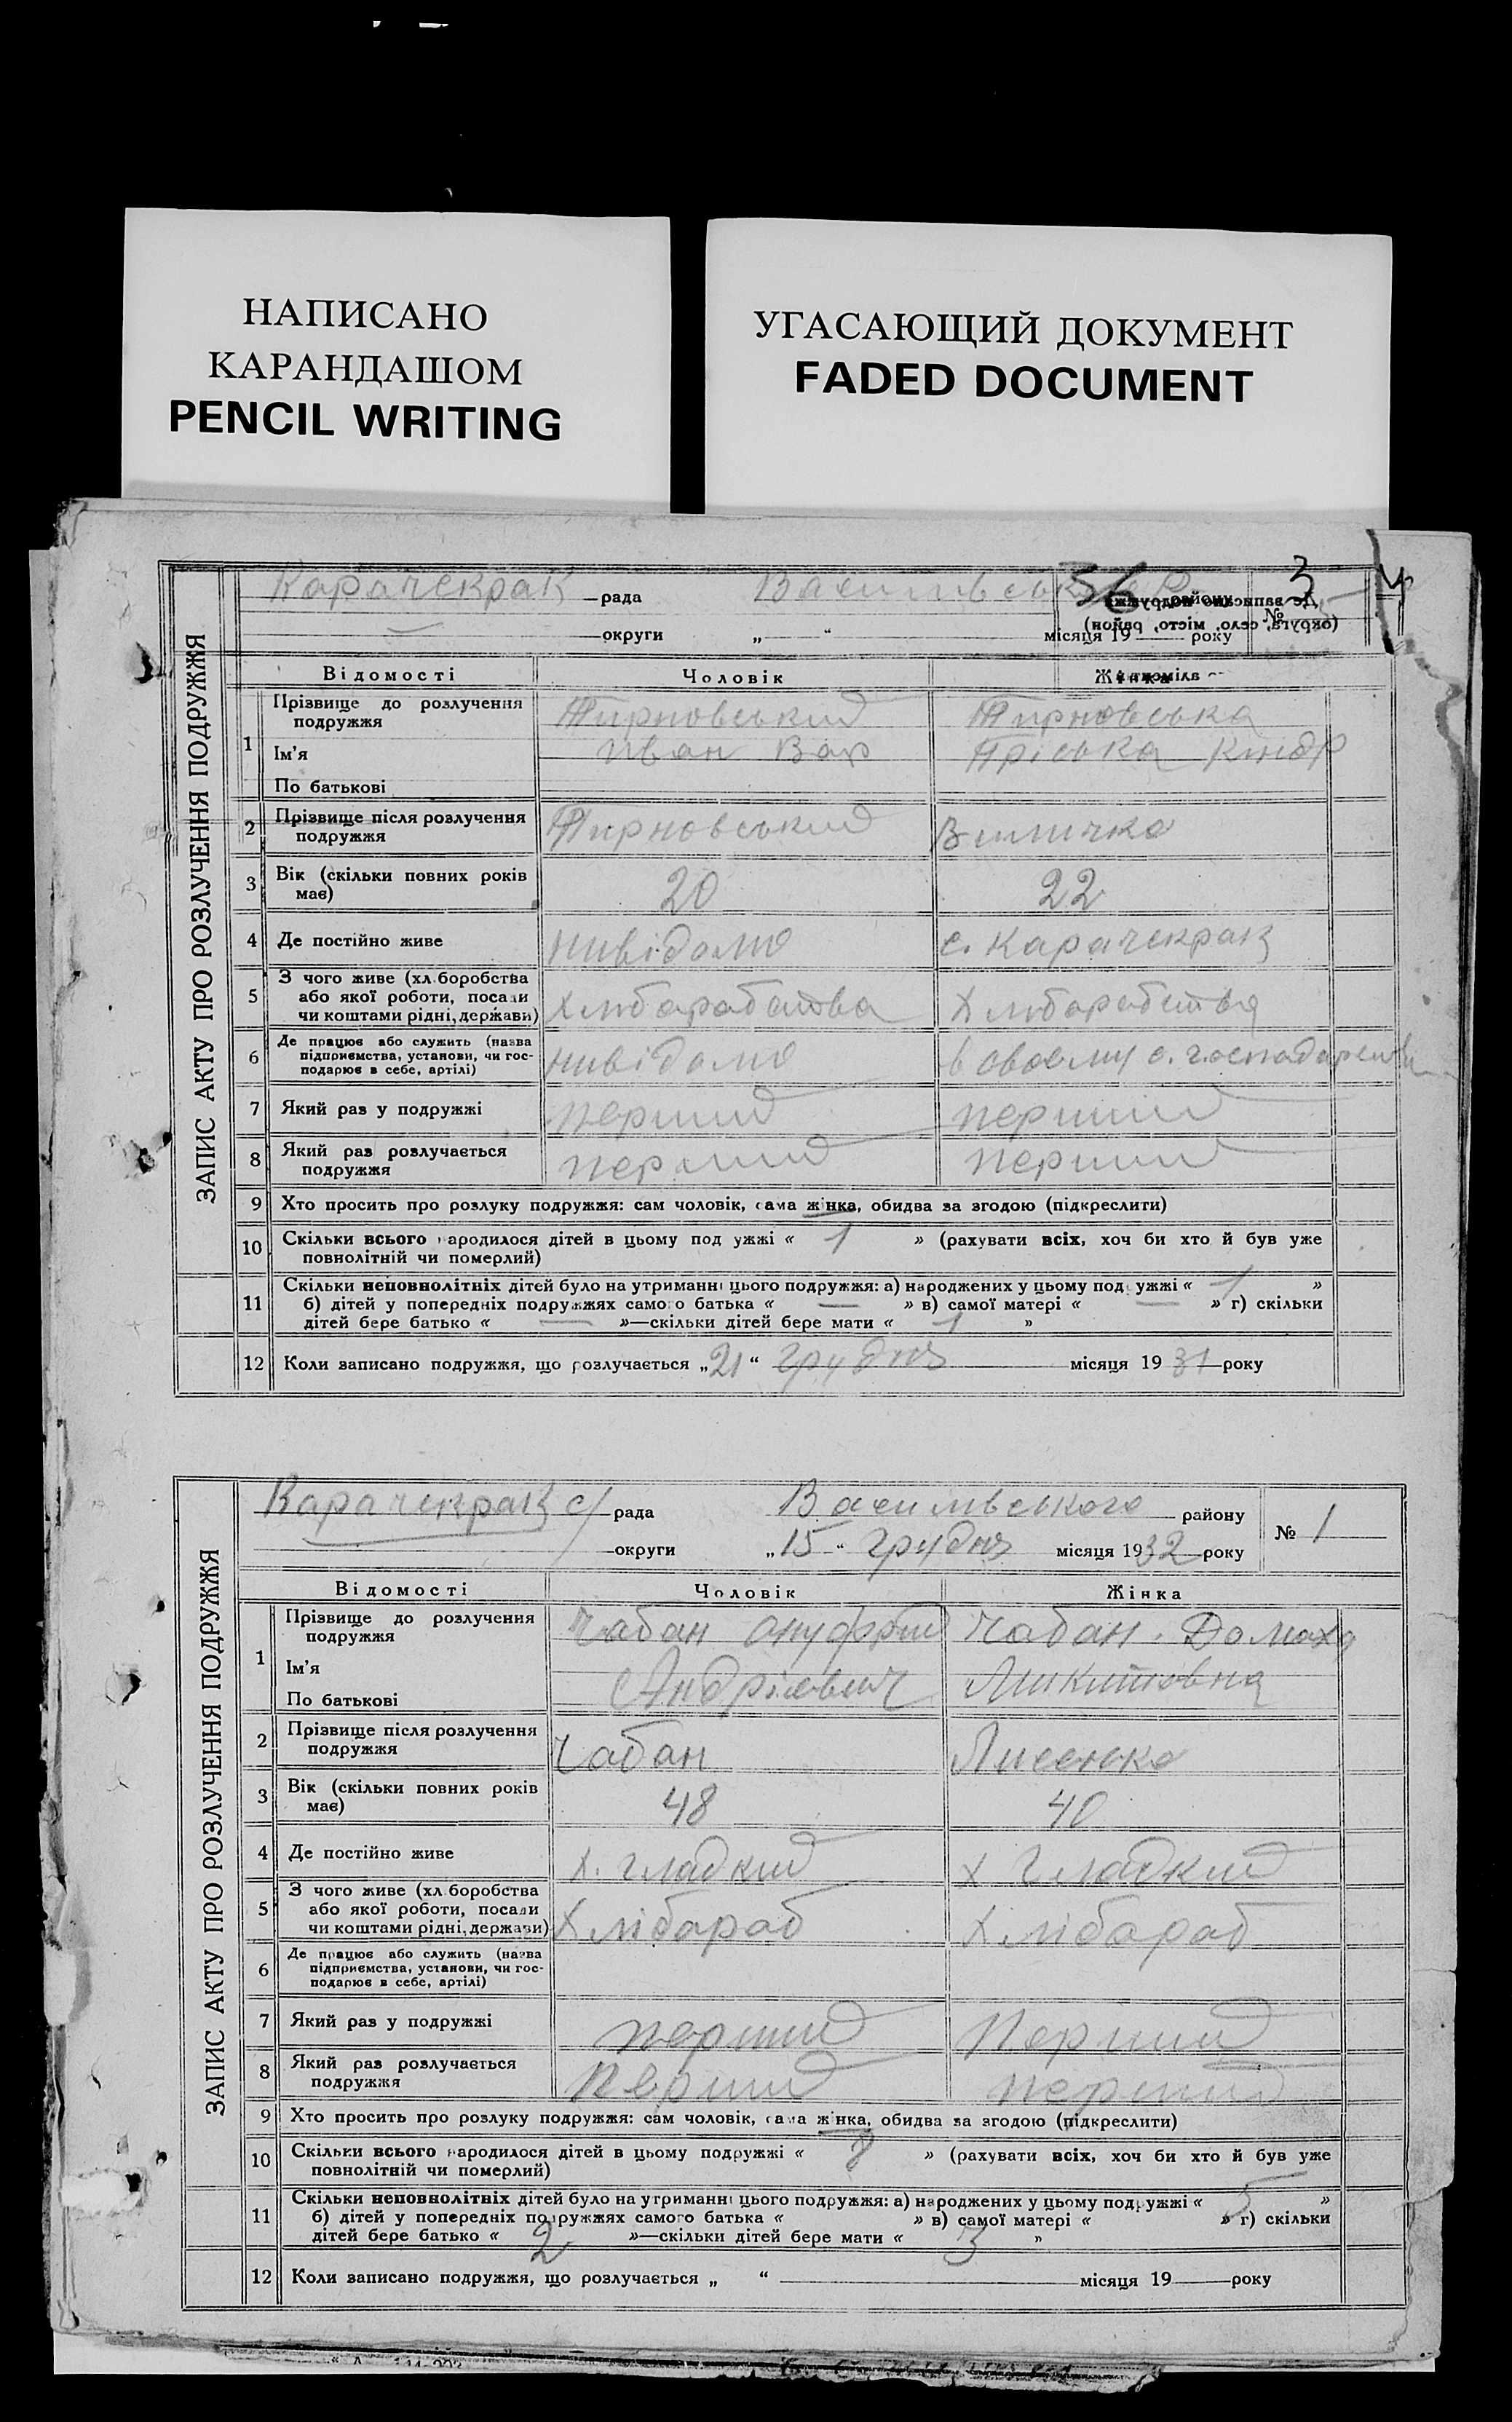 НАПИСАНО
КАРАНДАШОМ
PENCIL WRITING
УГАСАЮЩИЙ ДОКУМЕНТ
FADED DOCUMENT
ЗАПИС АКТУ ПРО РОЗЛУЧЕННЯ ПОДРУЖЖЯ
Карачекрак рада 56 № 3
округи „ “ місяця 19 року
Відомості Чоловік Жінка
1 Прізвище до розлучення подружжя Тирновський Тирновська
Ім'я Иван Вар Пріська Киндр
По батькові
2 Прізвище після розлучення
подружжя Тирновський
3 Вік (скільки повних років
має) 20 22
4 Де постійно живе нивідомо с. Карачекрак
5 З чого живе (хл боробства
або якої роботи, посади
чи коштами рідні, держави) Хлібарабства Хлібарабства
6 Де працює або служить (назва
підприємства, установи, чи гос-
подарює в себе, артілі) нивідомо в своєму с. господарстві
7 Який раз у подружжі перший перший
8 Який раз розлучається
подружжя перший перший
9 Хто просить про розлуку подружжя: сам чоловік, сама жінка, обидва за згодою (підкреслити)
10 Скільки всього народилося дітей в цьому под ужжі « 1 » (рахувати всіх, хоч би хто й був уже
повнолітній чи померлий)
11 Скільки неповнолітніх дітей було на утриманні цього подружжя: а) народжених у цьому под ужжі « 1 »
б) дітей у попередніх подружжях самого батька « — » в) самої матері « — » г) скільки
дітей бере батько « — »—скільки дітей бере мати « 1 »
12 Коли записано подружжя, що розлучається „21“ грудня місяця 1931 року
ЗАПИС АКТУ ПРО РОЗЛУЧЕННЯ ПОДРУЖЖЯ
Карачекрак с/ рада Василівського району № 1
округи „15“ грудня місяця 1932 року
Відомості Чоловік Жінка
1 Прізвище до розлучення
подружжя Чабан Ануфрій Чабан Домаха
Ім'я Андріевич Микитовна
По батькові
2 Прізвище після розлучення
подружжя Чабан Лисенко
3 Вік (скільки повних років
має) 48 40
4 Де постійно живе х. Гладкий х Гладкий
5 З чого живе (хл боробства
або якої роботи, посади
чи коштами рідні, держави) Хлібараб Хлібараб
6 Де працює або служить (назва
підприємства, установи, чи гос-
подарює в себе, артілі)
7 Який раз у подружжі перший Перший
8 Який раз розлучається
подружжя Перший перший
9 Хто просить про розлуку подружжя: сам чоловік, сама жінка, обидва за згодою (підкреслити)
10 Скільки всього народилося дітей в цьому подружжі « 8 » (рахувати всіх, хоч би хто й був уже
повнолітній чи померлий)
11 Скільки неповнолітніх дітей було на утриманні цього подружжя: а) народжених у цьому подружжі « 5 »
б) дітей у попередніх подружжях самого батька « » в) самої матері « » г) скільки
дітей бере батько « 2 »—скільки дітей бере мати « 3 »
12 Коли записано подружжя, що розлучається „ “ місяця 19 року